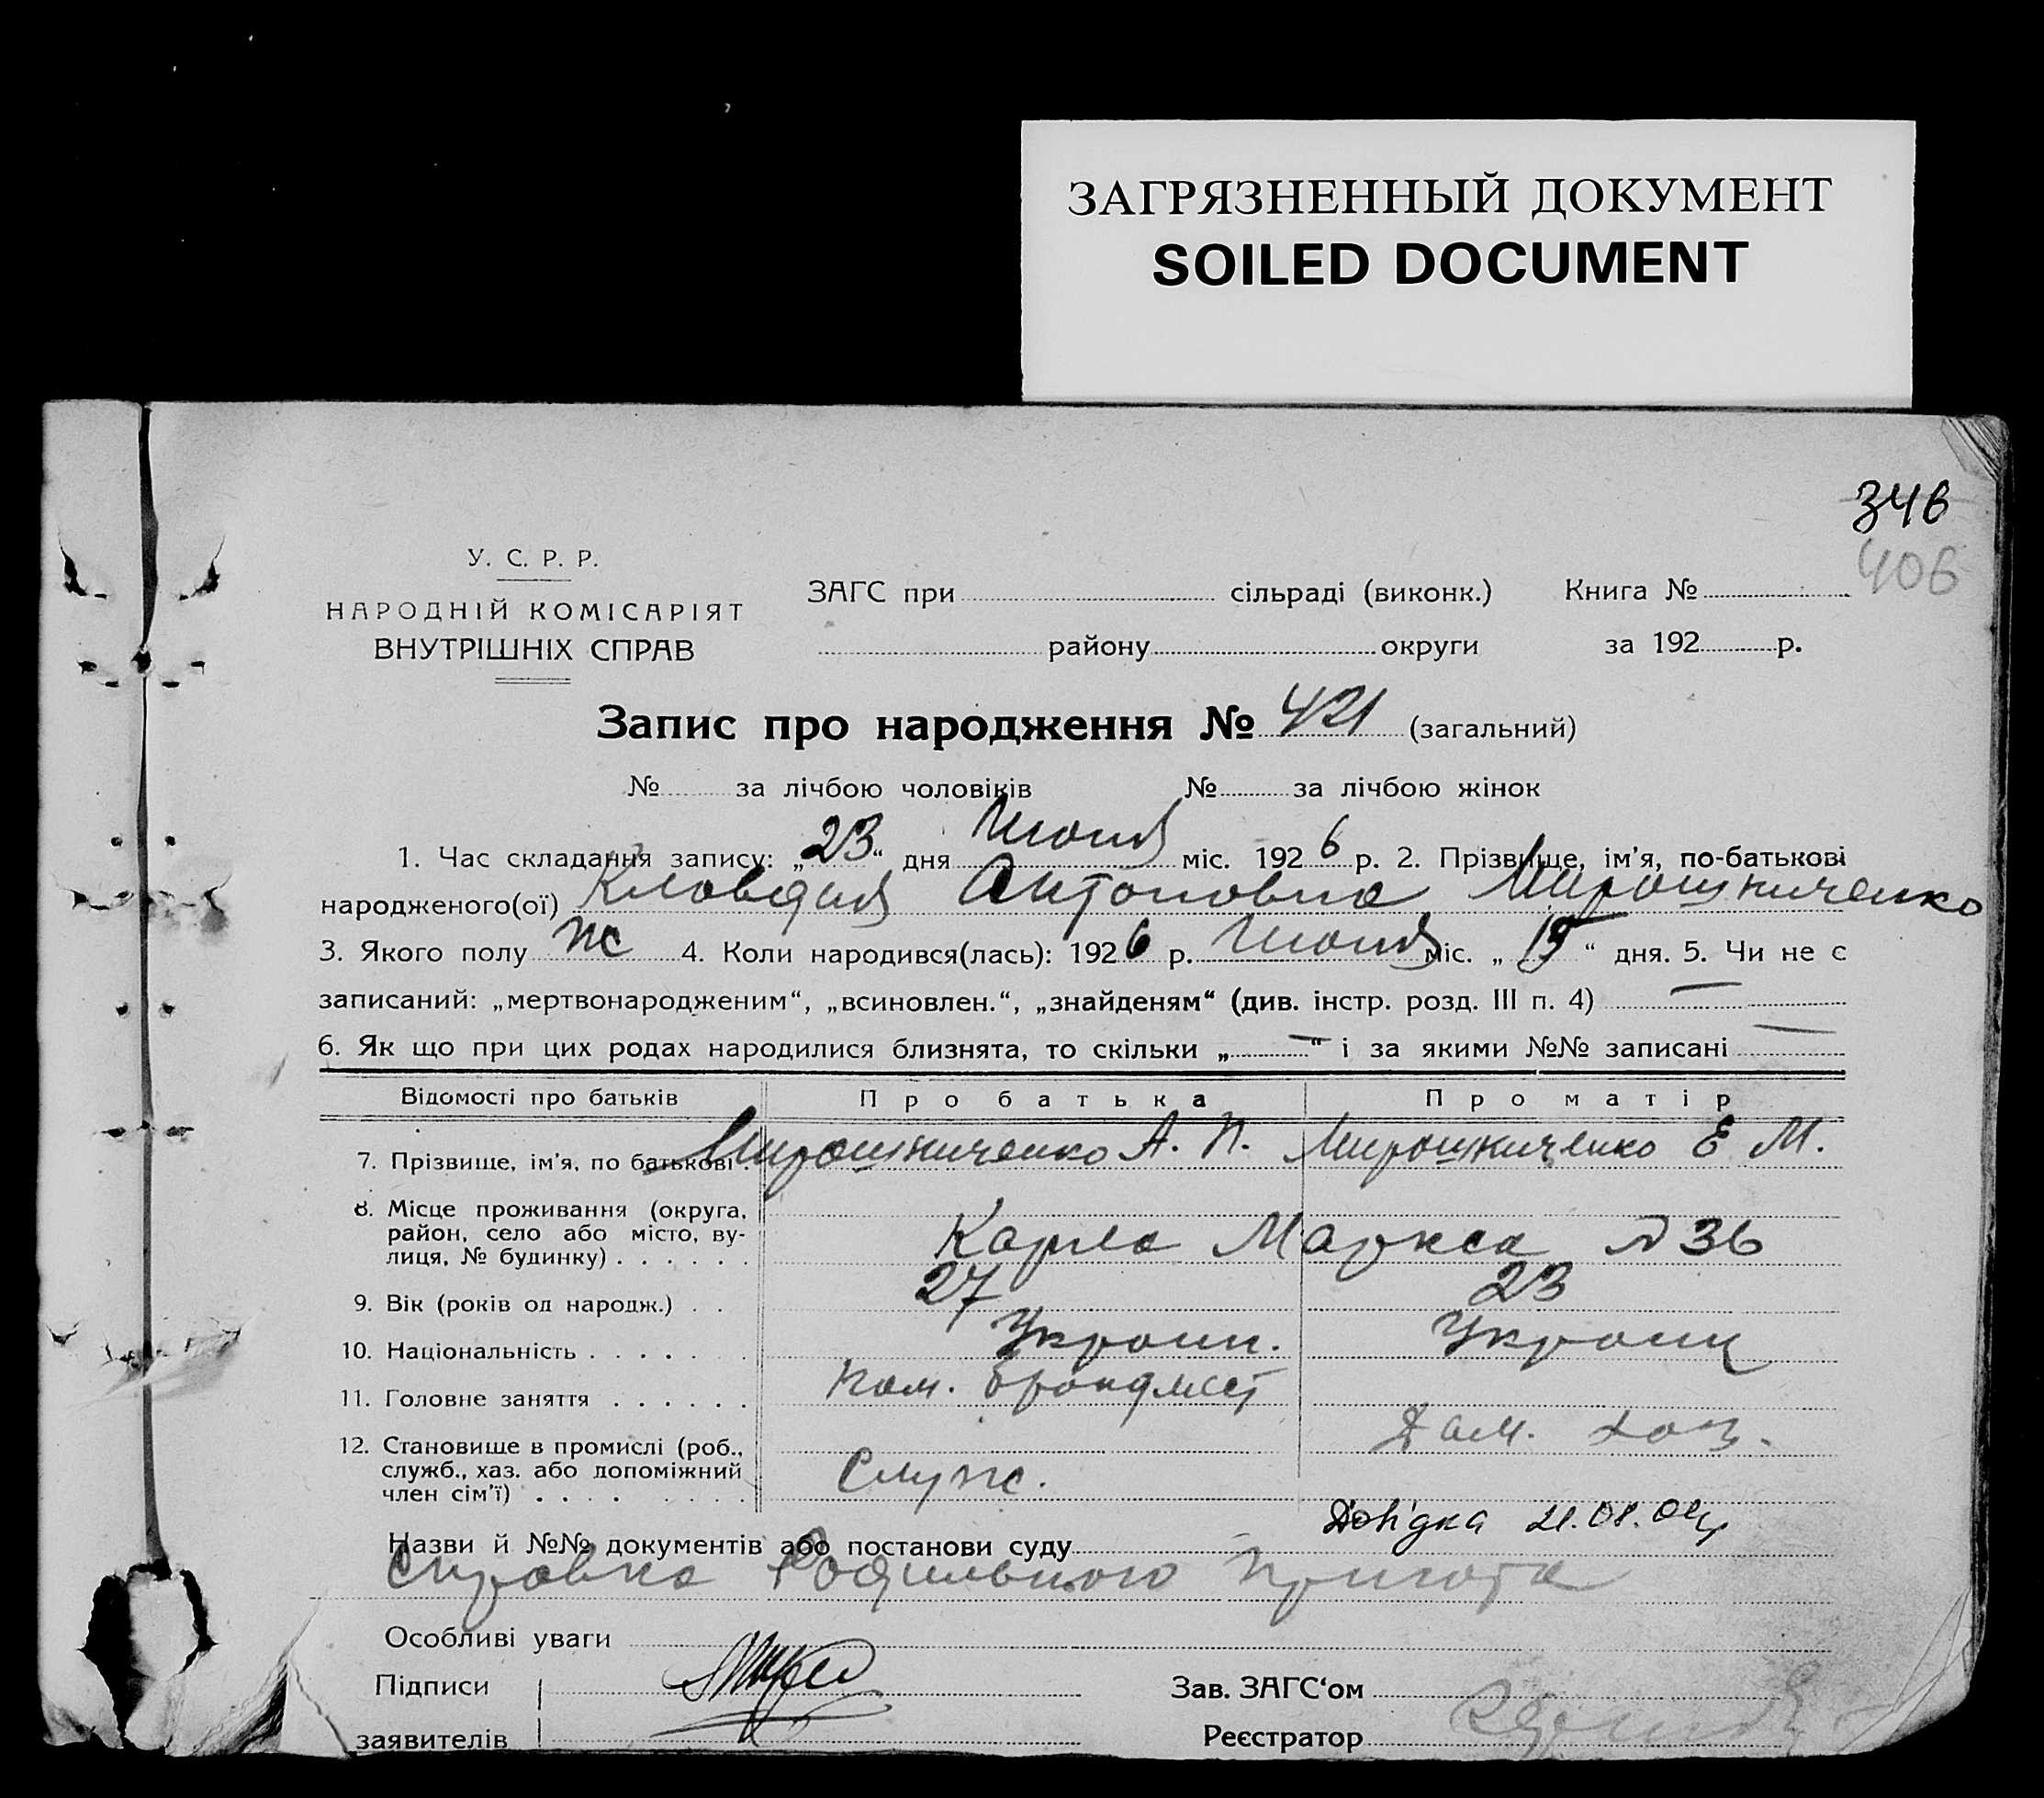 ЗАГРЯЗНЕННЫЙ ДОКУМЕНТ
SOILED DOCUMENT
346
406
У. С. Р. Р.
НАРОДНІЙ КОМІСАРІЯТ
ВНУТРІШНІХ СПРАВ
ЗАГС при сільраді (виконк.) Книга №
району округи за 192 р.
Запис про народження № 421 (загальний)
№ за лічбою чоловіків № за лічбою жінок
1. Час складання запису: „23“ дня Июня міс. 1926 р. 2. Прізвище, ім'я, по-батькові
народженого(ої) Клавдия Антоновна Мирошниченко
3. Якого полу ж 4. Коли народився(лась): 1926 р. Июня міс. „15“ дня. 5. Чи не є
записаний: „мертвонародженим“, „всиновлен.“, „знайденям“ (див. інстр. розд. III п. 4) —
6. Як що при цих родах народилися близнята, то скільки „—“ і за якими №№ записані —
Відомості про батьків Про батька Про матір
7. Прізвище, ім'я, по батькові Мирошниченко А. П. Мирошниченко Е М.
8. Місце проживання (округа,
район, село або місто, ву-
лиця, № будинку) Карла Маркса № 36
9. Вік (років од народж.) 27 23
10. Національність Украин. Украин
11. Головне заняття пом. брандмест
12. Становище в промислі (роб., Дом. хоз.
служб., хаз. або допоміжний
член сім'ї) Служ.
Довідка 21.08.
Назви й №№ документів або постанови суду
Справка Родильного приюта
Особливі уваги
Підписи Зав. ЗАГС'ом
заявителів Реєстратор